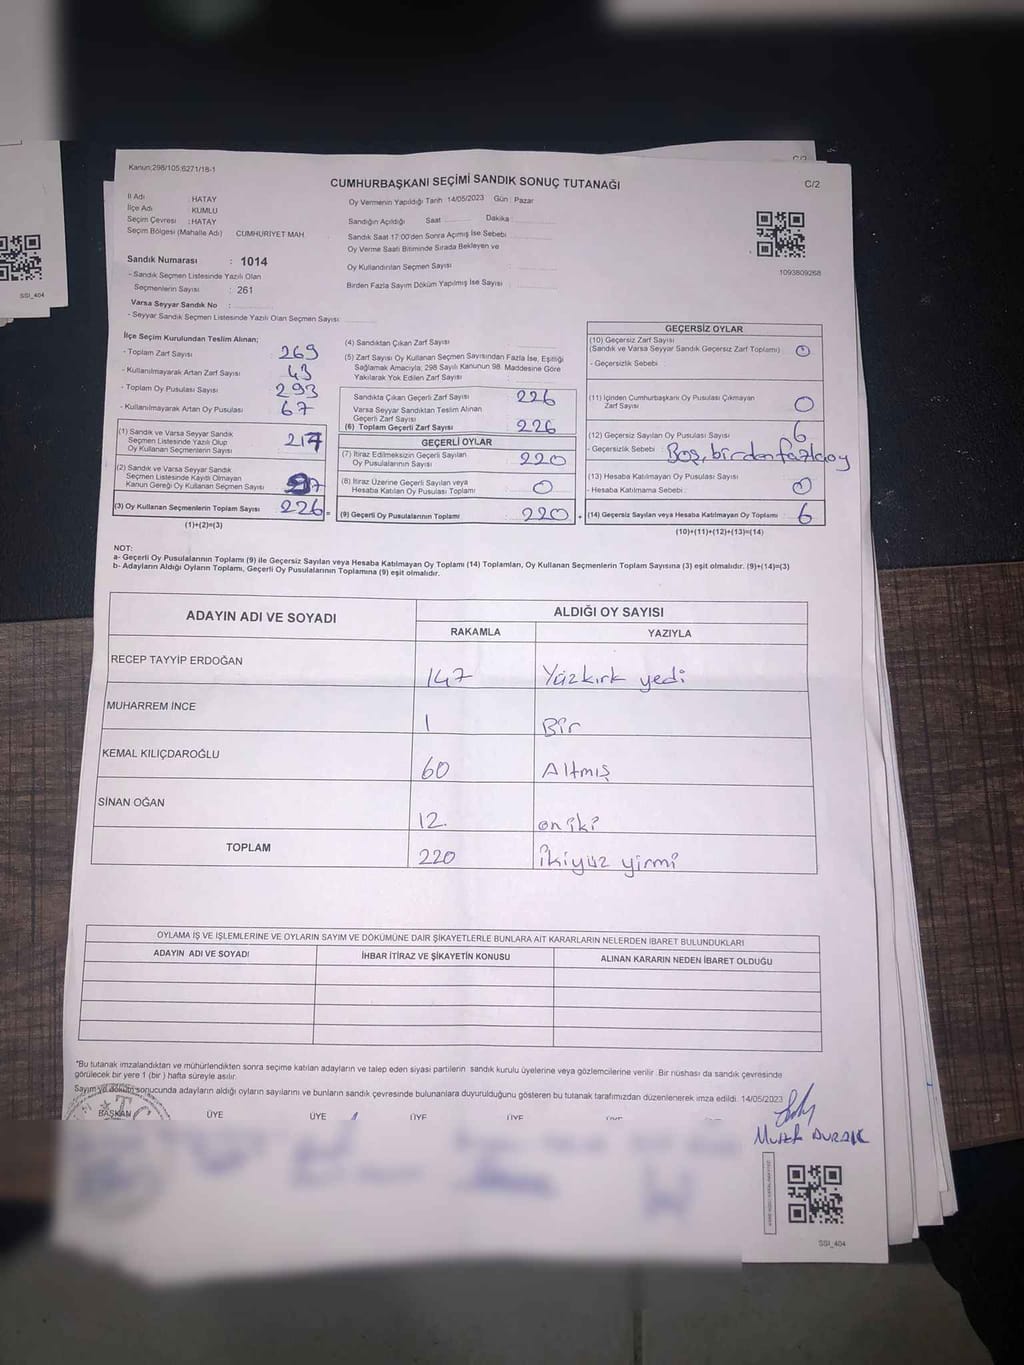 Kanun:298/105;6271/18-1
C/2
C/2
CUMHURBAŞKANI SEÇİMİ SANDIK SONUÇ TUTANAĞI
İl Adı : HATAY
İlçe Adı : KUMLU
Seçim Çevresi : HATAY
Seçim Bölgesi (Mahalle Adı) CUMHURİYET MAH
Sandık Numarası : 1014
- Sandık Seçmen Listesinde Yazılı Olan
Seçmenlerin Sayısı : 261
Varsa Seyyar Sandık No :
- Seyyar Sandık Seçmen Listesinde Yazılı Olan Seçmen Sayısı
Oy Vermenin Yapıldığı Tarih 14/05/2023 Gün : Pazar
Sandığın Açıldığı Saat Dakika
Sandık Saat 17:00'den Sonra Açımış İse Sebebi
Oy Verme Saati Bitiminde Sırada Bekleyen ve
Oy Kullandırılan Seçmen Sayısı
Birden Fazla Sayım Döküm Yapılmış İse Sayısı :
1093809268
SSI_404
İlçe Seçim Kurulundan Teslim Alınan;
- Toplam Zarf Sayısı 269
- Kullanılmayarak Artan Zarf Sayısı 43
- Toplam Oy Pusulası Sayısı 293
- Kullanılmayarak Artan Oy Pusulası 67
(1) Sandık ve Varsa Seyyar Sandık
Seçmen Listesinde Yazılı Olup
Oy Kullanan Seçmenlerin Sayısı
(2) Sandık ve Varsa Seyyar Sandık
Seçmen Listesinde Kayıtlı Olmayan
Kanun Gereği Oy Kullanan Seçmen Sayısı
(3) Oy Kullanan Seçmenlerin Toplam Sayısı 226 =
(1)+(2)=(3)
(4) Sandıktan Çıkan Zarf Sayısı
(5) Zarf Sayısı Oy Kullanan Seçmen Sayısından Fazla İse, Eşitliği
Sağlamak Amacıyla, 298 Sayılı Kanunun 98. Maddesine Göre
Yakılarak Yok Edilen Zarf Sayısı :
Sandıkta Çıkan Geçerli Zarf Sayısı 226
Varsa Seyyar Sandıktan Teslim Alınan
Geçerli Zarf Sayısı
(6) Toplam Geçerli Zarf Sayısı 226
GEÇERLİ OYLAR
(7) İtiraz Edilmeksizin Geçerli Sayılan
Oy Pusulalarının Sayısı 220
(8) İtiraz Üzerine Geçerli Sayılan veya
Hesaba Katılan Oy Pusulası Toplamı 0
(9) Geçerli Oy Pusulalarının Toplamı 220 +
GEÇERSİZ OYLAR
(10) Geçersiz Zarf Sayısı
(Sandık ve Varsa Seyyar Sandık Geçersiz Zarf Toplamı) 0
- Geçersizlik Sebebi
(11) İçinden Cumhurbaşkanı Oy Pusulası Çıkmayan
Zarf Sayısı 0
(12) Geçersiz Sayılan Oy Pusulası Sayısı 6
- Geçersizlik Sebebi Boş, birden fazla oy
(13) Hesaba Katılmayan Oy Pusulası Sayısı 0
- Hesaba Katılmama Sebebi :
(14) Geçersiz Sayılan veya Hesaba Katılmayan Oy Toplamı 6
(10)+(11)+(12)+(13)=(14)
NOT:
a- Geçerli Oy Pusulalarının Toplamı (9) ile Geçersiz Sayılan veya Hesaba Katılmayan Oy Toplamı (14) Toplamları, Oy Kullanan Seçmenlerin Toplam Sayısına (3) eşit olmalıdır. (9)+(14)=(3)
b- Adayların Aldığı Oyların Toplamı, Geçerli Oy Pusulalarının Toplamına (9) eşit olmalıdır.
ADAYIN ADI VE SOYADI ALDIĞI OY SAYISI
RAKAMLA YAZIYLA
RECEP TAYYİP ERDOĞAN 147 Yüzkırk yedi
MUHARREM İNCE 1 Bir
KEMAL KILIÇDAROĞLU 60 Altmış
SİNAN OĞAN 12 on iki
TOPLAM 220 ikiyüz yirmi
OYLAMA İŞ VE İŞLEMLERİNE VE OYLARIN SAYIM VE DÖKÜMÜNE DAİR ŞİKAYETLERLE BUNLARA AİT KARARLARIN NELERDEN İBARET BULUNDUKLARI
ADAYIN ADI VE SOYADI İHBAR İTİRAZ VE ŞİKAYETİN KONUSU ALINAN KARARIN NEDEN İBARET OLDUĞU
*Bu tutanak imzalandıktan ve mühürlendikten sonra seçime katılan adayların ve talep eden siyasi partilerin sandık kurulu üyelerine veya gözlemcilerine verilir. Bir nüshası da sandık çevresinde
görülecek bir yere 1 (bir ) hafta süreyle asılır.
Sayım ve döküm sonucunda adayların aldığı oyların sayılarını ve bunların sandık çevresinde bulunanlara duyurulduğunu gösteren bu tutanak tarafımızdan düzenlenerek imza edildi. 14/05/2023
BAŞKAN ÜYE ÜYE ÜYE ÜYE
SSI_404